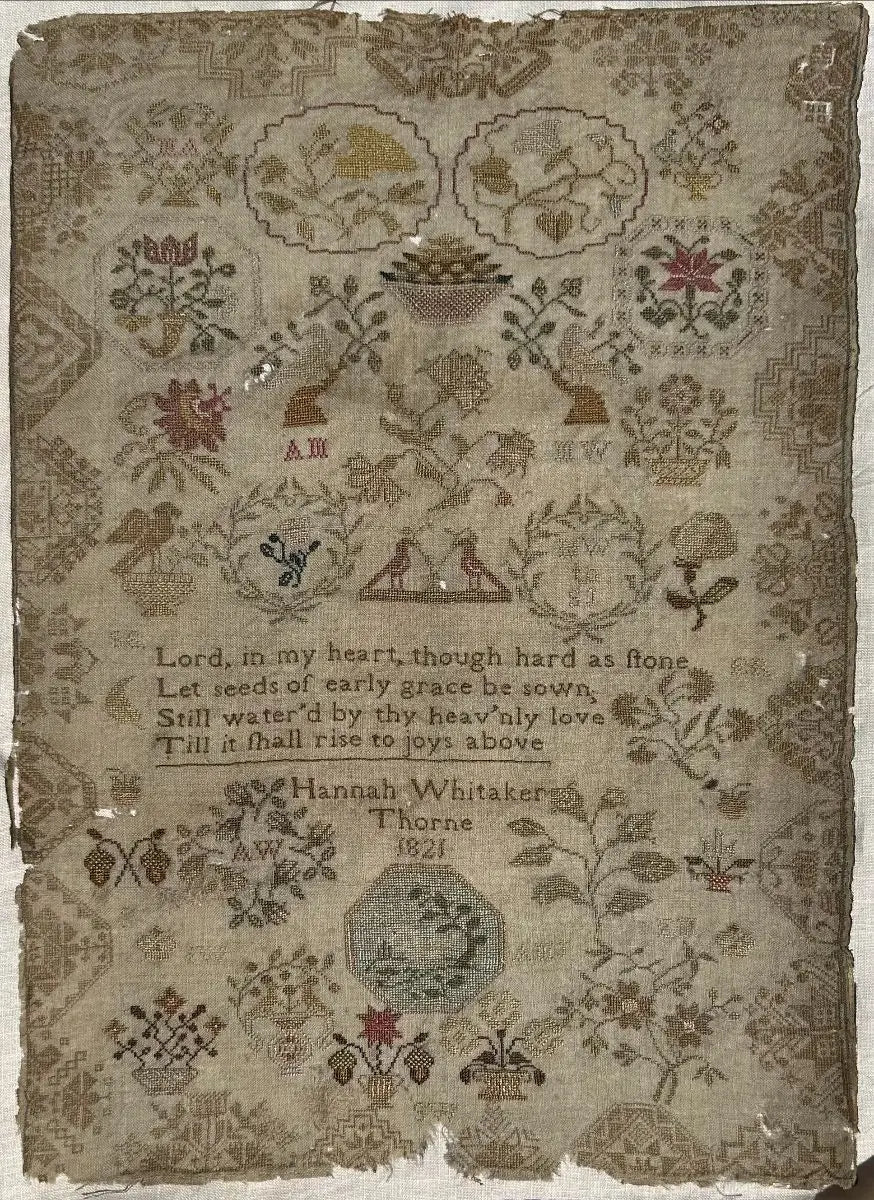 A W
Lord, in my heart, though hard as ſtone
Let seeds of early grace be sown,
Still water'd by thy heav'nly love
Till it ſhall rise to joys above
Hannah Whitaker
Thorne
AW
1821